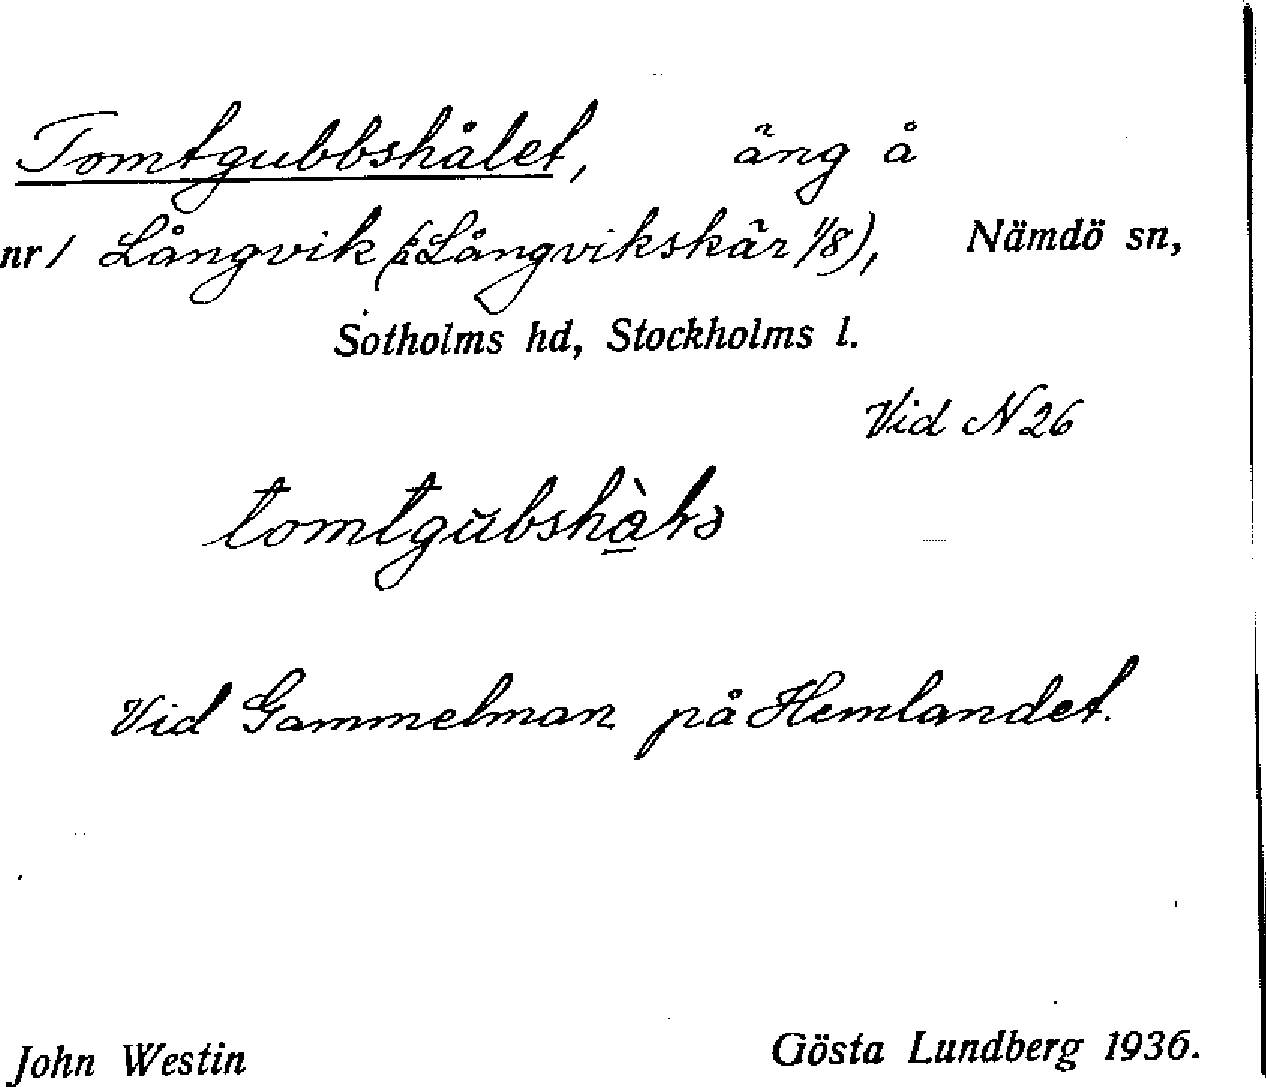 Tomtgubbshålet, äng å
nr 1 Långvik (Långvikskär 1/8), Nämdö sn,
Sotholms hd, Stockholms l.
Vid N 26
Vid Gammelman på Hemlandet.
John Westin Gösta Lundberg 1936.